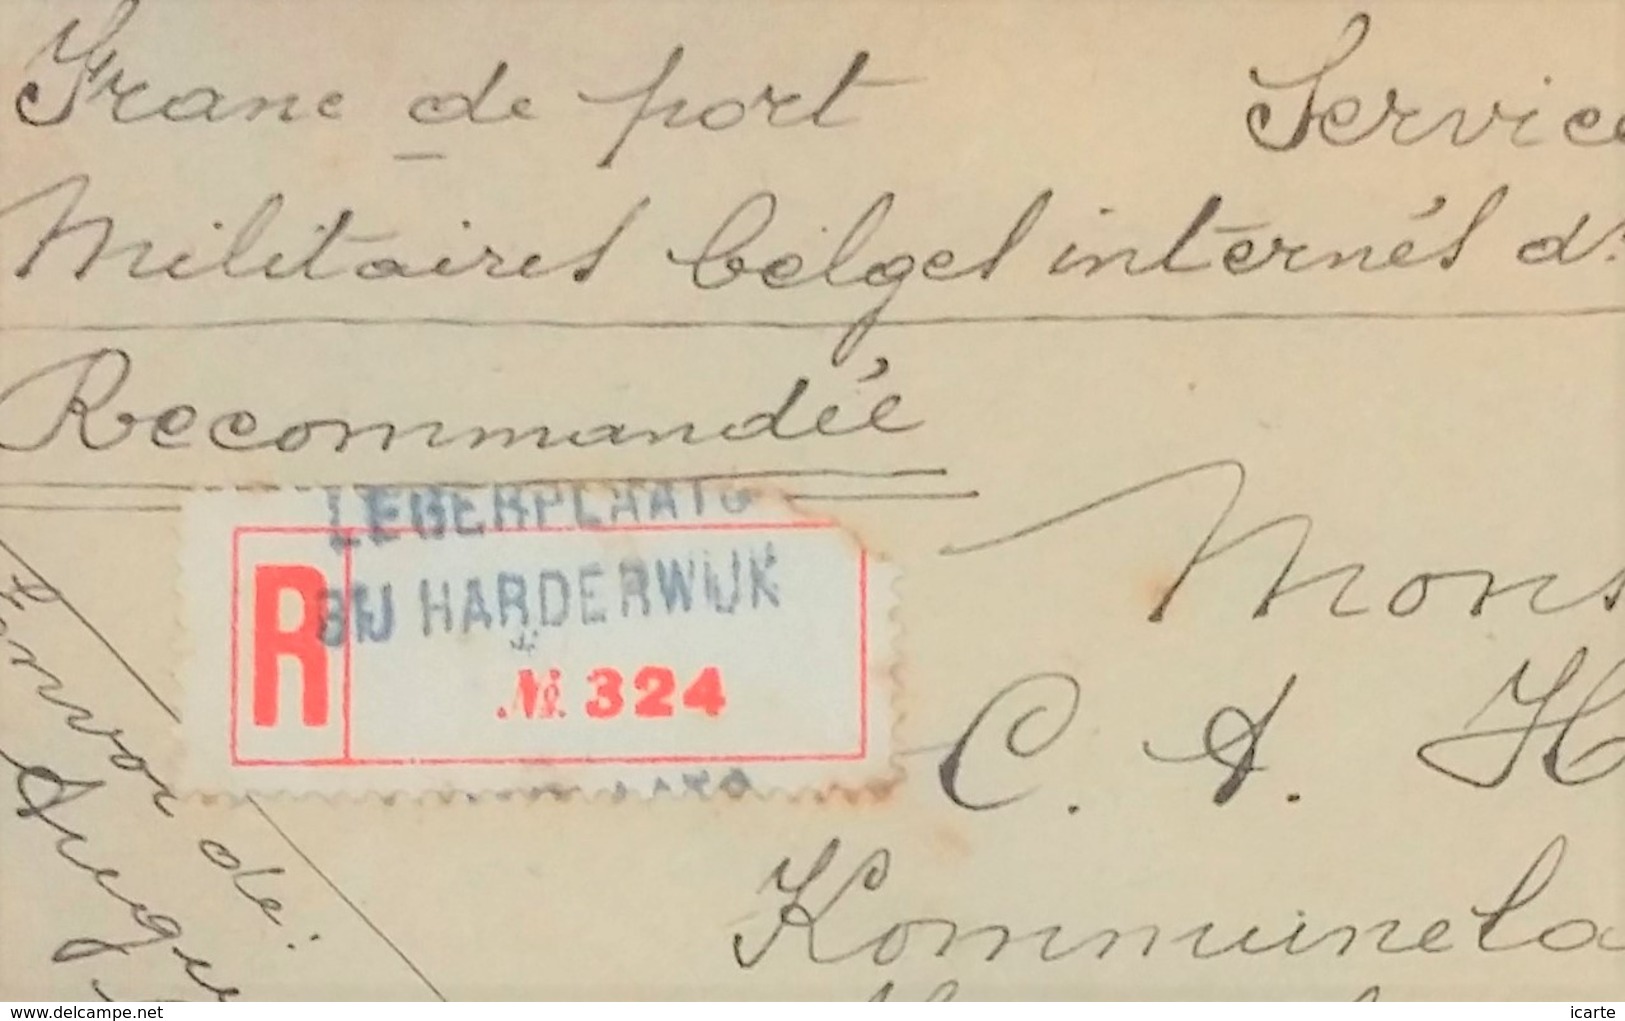 Franc de port Service
Militaires belges internés ds
Recommandée
LEGERPLAATS
BIJ HARDERWIJK
R
№ 324
Mons
C. A. H
Kommuneta
Envoi de:
delcampe.net
icarte